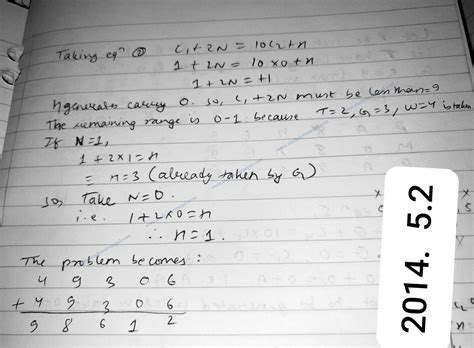 Taking eqn ② C₁ + 2N = 10C₂ + n
1 + 2N = 10 × 0 + n
1 + 2N = +1
generates carry 0. so, C₁ + 2N must be less than = 9
The remaining range is 0-1 because T=2, G=3, W=4 is taken
If N=1,
1 + 2×1 = n
= n=3 (already taken by G)
so, Take N=0.
i.e. 1 + 2×0 = n
∴ n=1.
The problem becomes:
4 9 3 0 6
+ 4 9 3 0 6
9 8 6 1 2
2014. 5.2